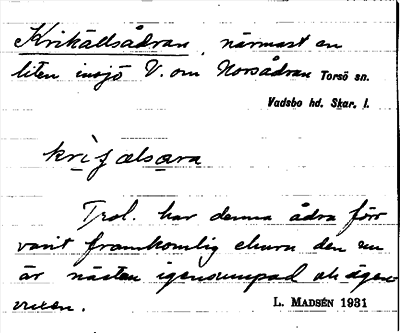 Krikällsådran, närmast en
liten insjö V. om Norsådran Torsö sn.
Vadsbo hd. Skar. l.
Trol. har denna ådra förr
varit framkomlig ehuru den nu
är nästan igensumpad och igen-
vuxen.
L. MADSÉN 1931